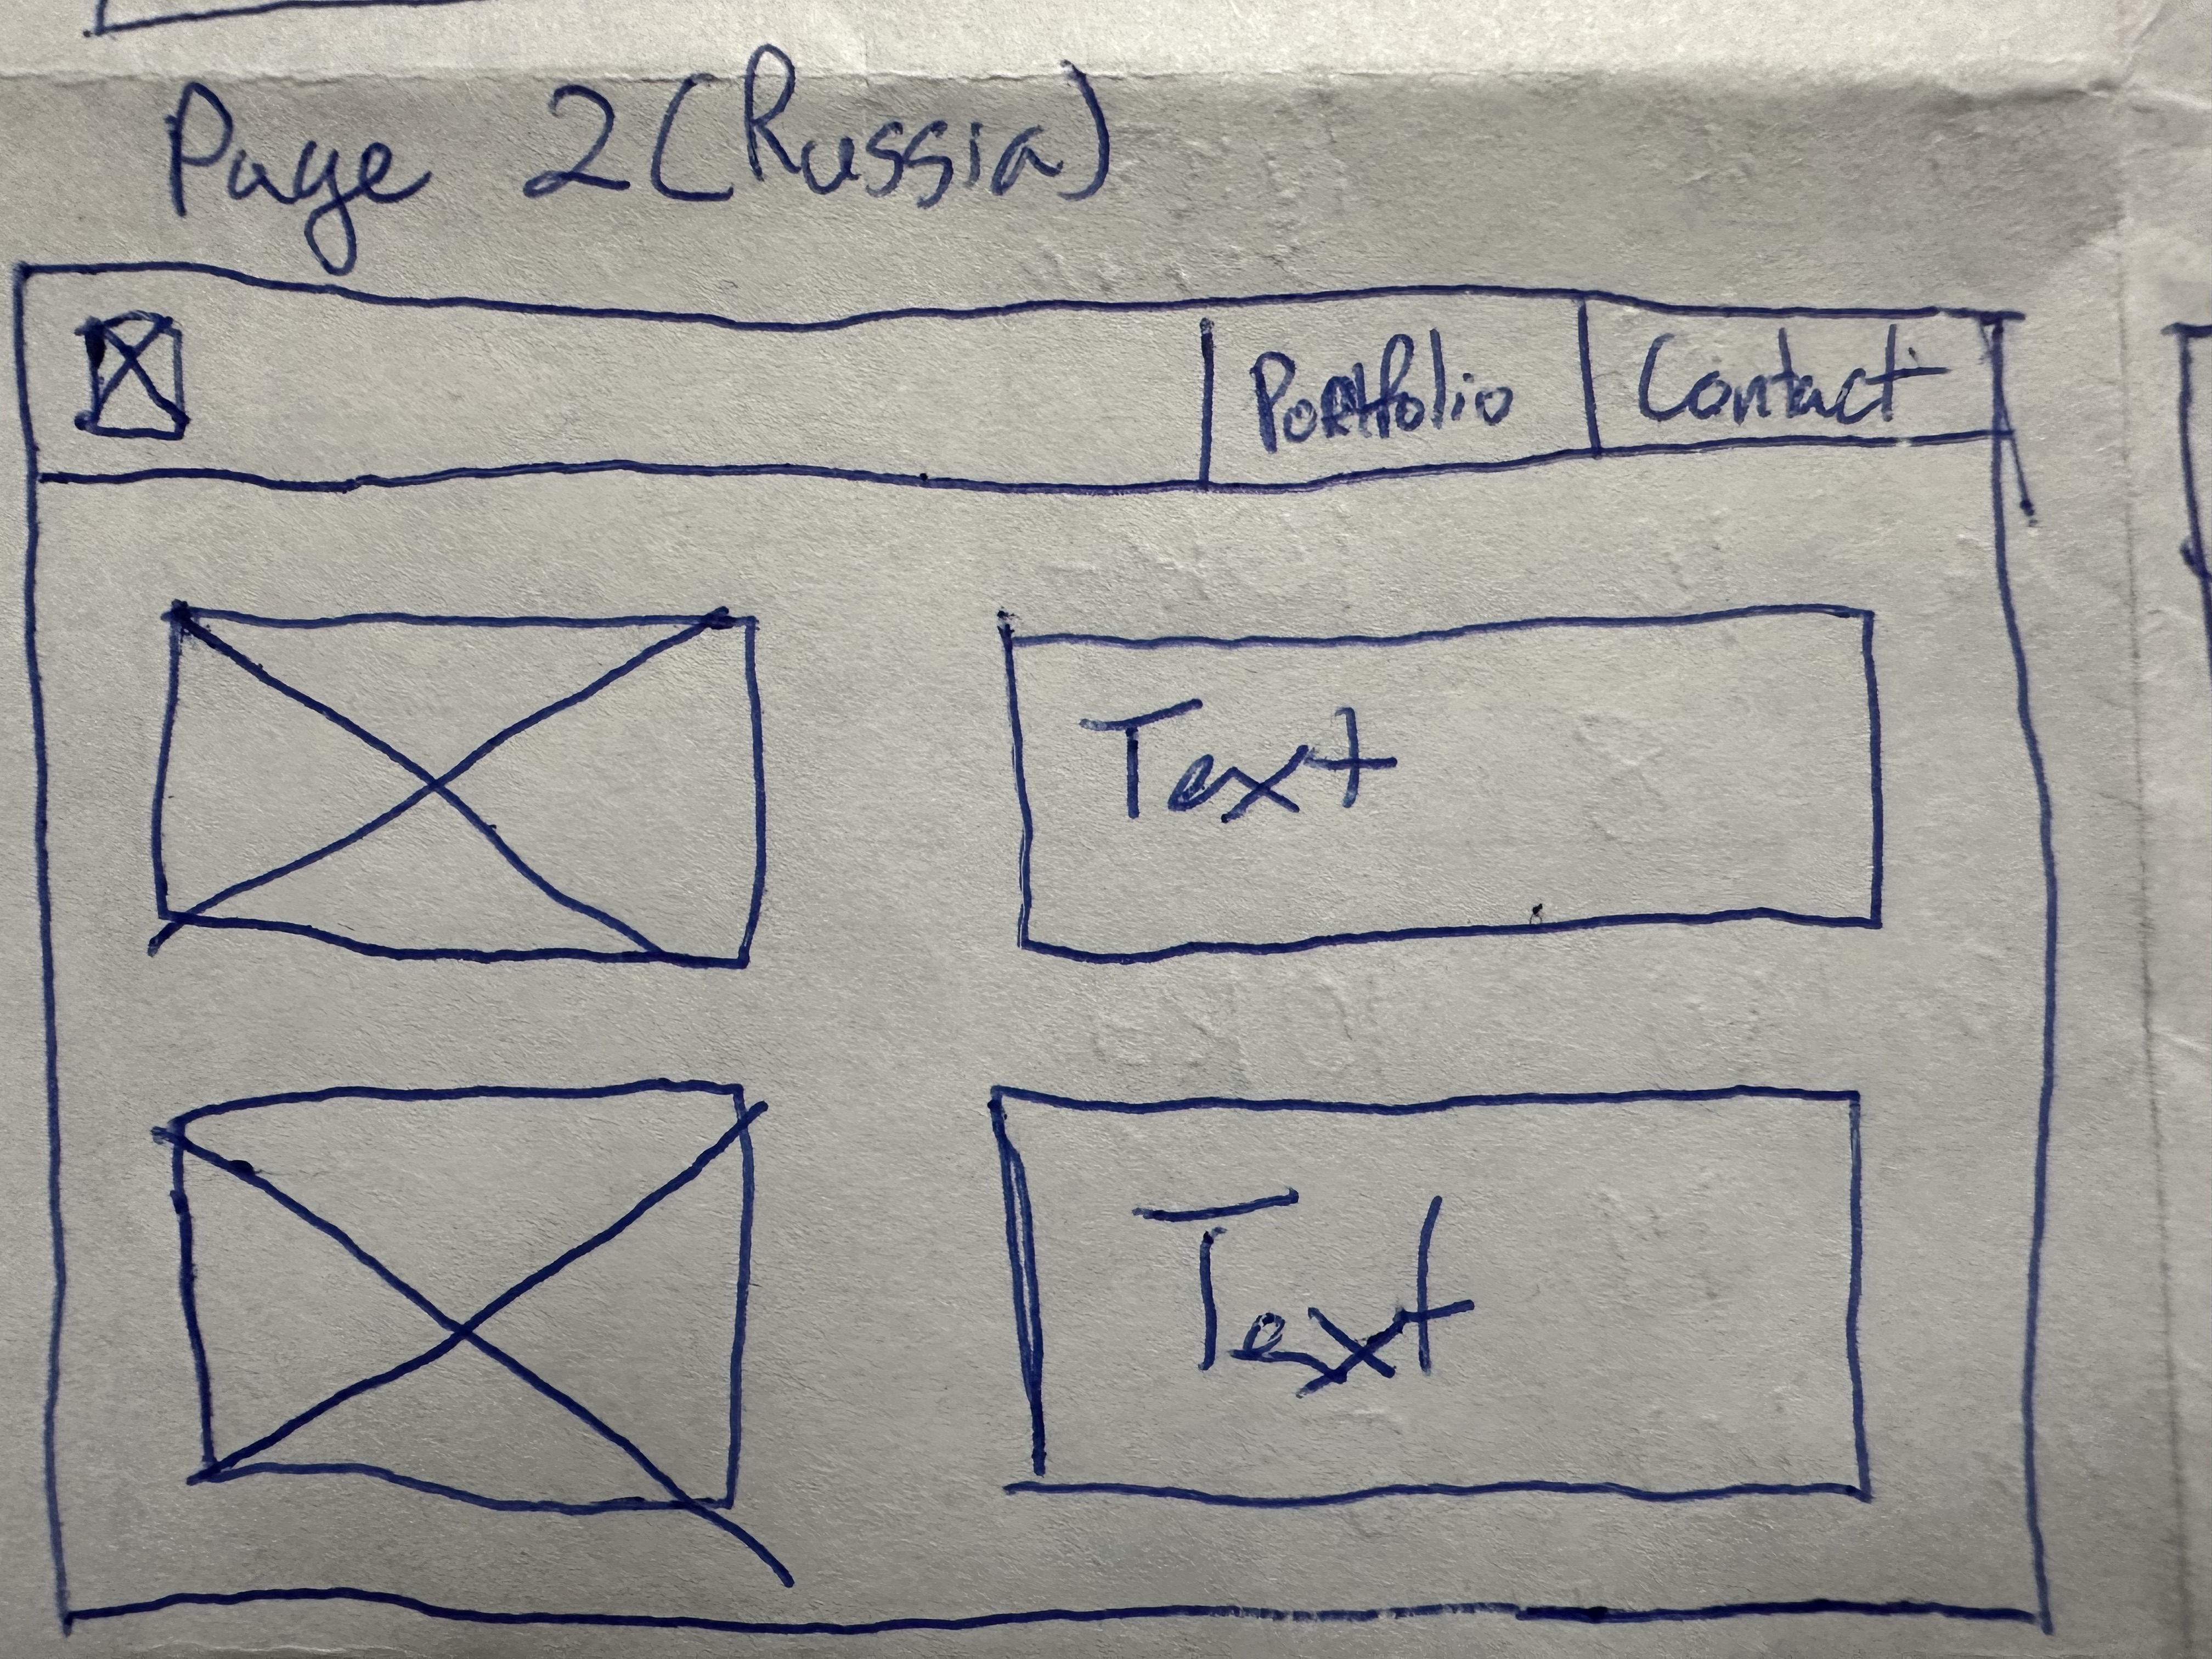 Page 2 (Russia)
Portfolio Contact
Text
Text